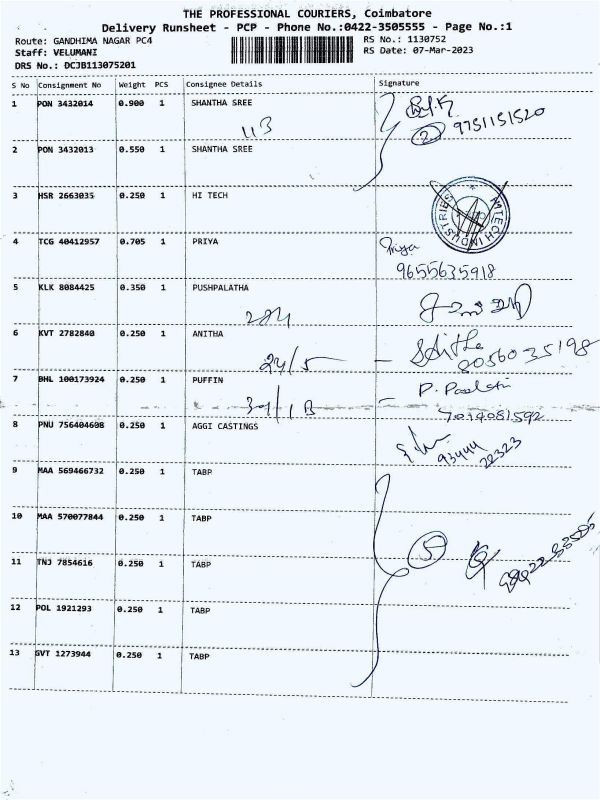 THE PROFESSIONAL COURIERS, Coimbatore
Delivery Runsheet - PCP - Phone No.:0422-3505555 - Page No.:1
Route: GANDHIMA NAGAR PC4
RS No.: 1130752
Staff: VELUMANI
RS Date: 07-Mar-2023
DRS No.: DCJB113075201
S No Consignment No Weight PCS Consignee Details Signature
1 PON 3432014 0.900 1 SHANTHA SREE
113
2 9751151520
2 PON 3432013 0.550 1 SHANTHA SREE
3 HSR 2663035 0.250 1 HI TECH
INDUSTRIES
4 TCG 40412957 0.705 1 PRIYA
Priya
9655635918
5 KLK 8084425 0.350 1 PUSHPALATHA
284
6 KVT 2782840 0.250 1 ANITHA
24/5 -
8056035198
7 BHL 100173924 0.250 1 PUFFIN
39/1B -
7019081592
8 PNU 756404608 0.250 1 AGGI CASTINGS
93444
22323
9 MAA 569466732 0.250 1 TABP
10 MAA 570077844 0.250 1 TABP
5
11 TNJ 7854616 0.250 1 TABP
12 POL 1921293 0.250 1 TABP
13 GVT 1273944 0.250 1 TABP